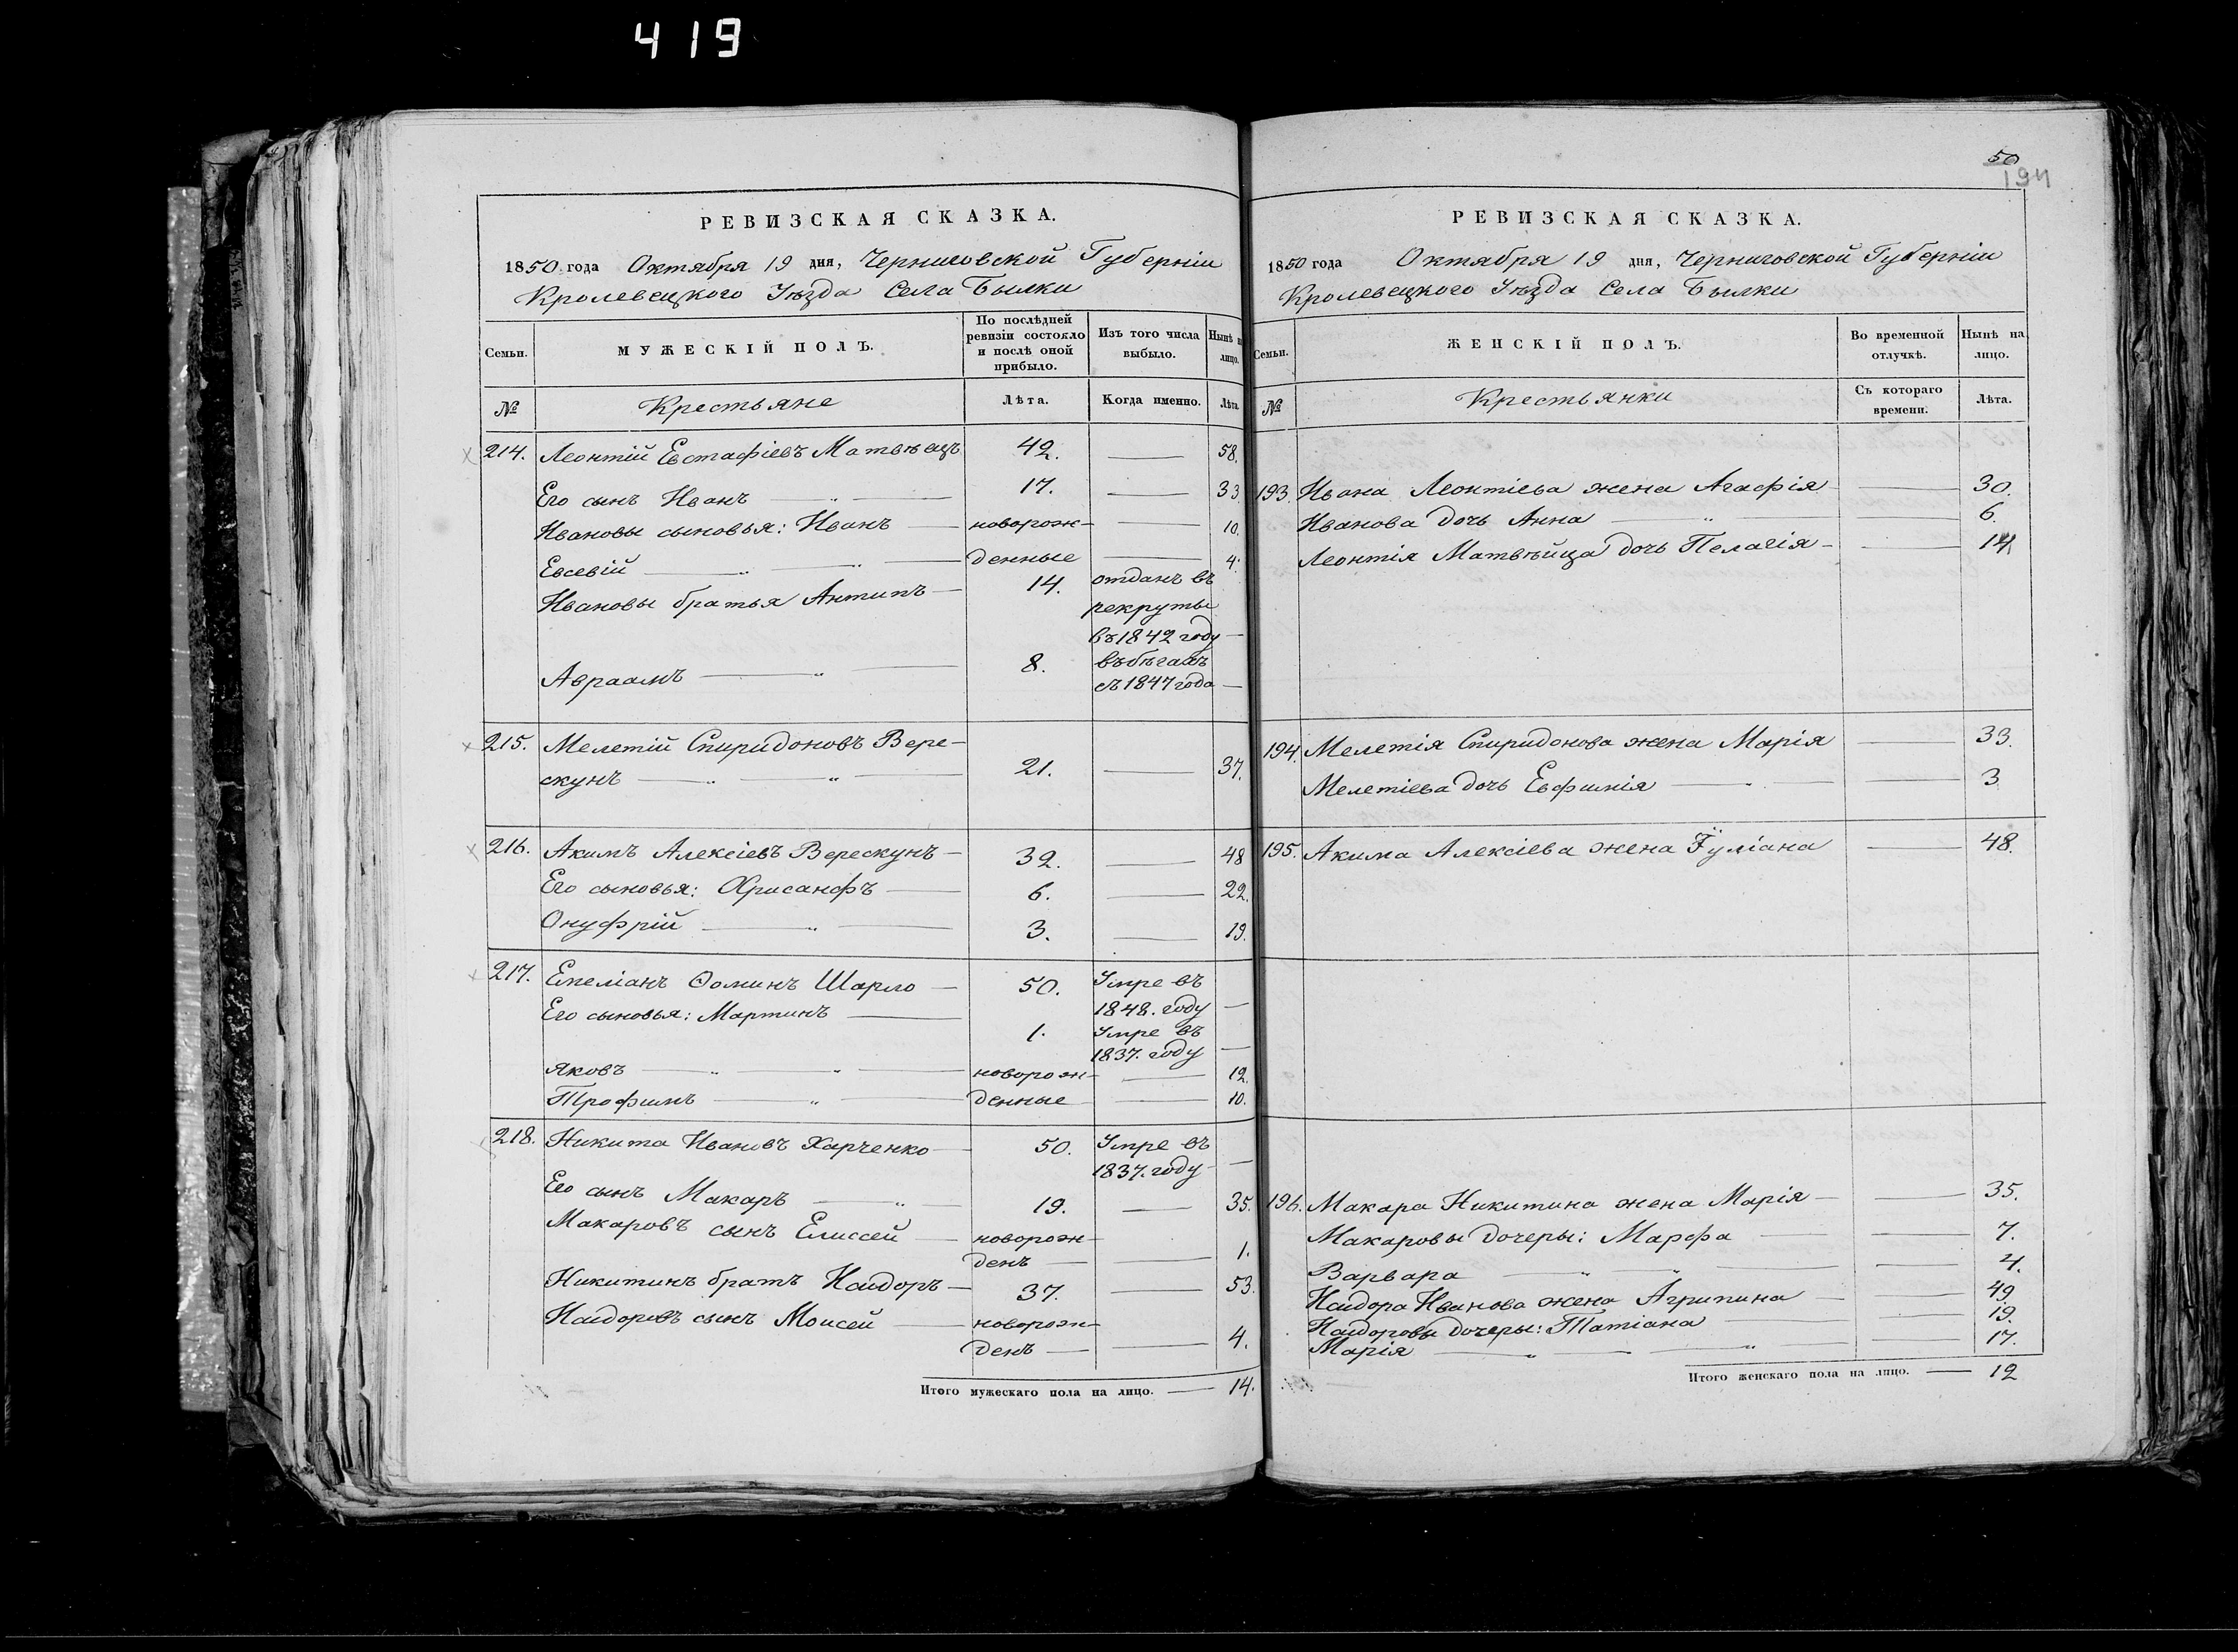 419
РЕВИЗСКАЯ СКАЗКА.
1850 года Октября 19 дня, Черниговской Губерніи
Кролевецкого Уѣзда Села Былки
Семьи.
МУЖЕСКІЙ ПОЛЪ.
По послѣдней ревизіи состояло и послѣ оной прибыло.
Изъ того числа выбыло.
Нынѣ на лицо.
№
Крестьяне
Лѣта.
Когда именно.
Лѣта
214. Леонтій Евстафіевъ Матвѣецъ 42. — 58.
Его сынъ Иванъ — „ — 17. — 33
Ивановы сыновья: Иванъ — новорож- — 10.
Евсевій — „ — „ — денные — 4.
Ивановы братья Антипъ — 14. отданъ въ
рекруты
въ 1842 году —
Авраамъ — „ — 8. въ бѣгахъ
съ 1847 года —
215. Мелетій Спиридоновъ Вере-
скунъ — „ — „ — 21. — 37.
216. Акимъ Алексіевъ Верескунъ — 32. — 48
Его сыновья: Хрисанфъ — 6. — 22.
Онуфрій — „ — 3. — 19.
217. Емеліанъ Ѳоминъ Шарло — 50. Умре въ
1848. году —
Его сыновья: Мартинъ — 1. Умре въ
1837. году —
Яковъ — „ — „ — новорож- — 12.
Трофимъ — „ — денные — 10.
218. Никита Ивановъ Харченко — 50. Умре въ
1837. году —
Его сынъ Макаръ — „ — 19. — 35.
Макаровъ сынъ Елисей — новорож-
денъ — — 1.
Никитинъ братъ Исидоръ — 37. — 53.
Исидоровъ сынъ Моисей — новорож-
денъ — — 4.
Итого мужескаго пола на лицо. — 14.
50
194
РЕВИЗСКАЯ СКАЗКА.
1850 года Октября 19 дня, Черниговской Губерніи
Кролевецкого Уѣзда Села Былки
Семьи.
ЖЕНСКІЙ ПОЛЪ.
Во временной отлучкѣ.
Нынѣ на лицо.
№
Крестьянки
Съ котораго времени.
Лѣта.
193. Ивана Леонтіева жена Агафія — — 30.
Иванова дочь Анна — „ — — 6.
Леонтія Матвѣйца дочь Пелагія — — 14
194. Мелетія Спиридонова жена Марія — 33.
Мелетіева дочь Евфимія — „ — — 3
195. Акима Алексіева жена Іуліана — 48.
196. Макара Никитина жена Марія — — 35.
Макаровы дочеры: Марфа — — 7.
Варвара — „ — „ — — 4.
Исидора Иванова жена Агрипина — — 49.
Исидоровы дочеры: Татіана — — 19.
Марія — „ — — „ — 17.
Итого женскаго пола на лицо. — 12